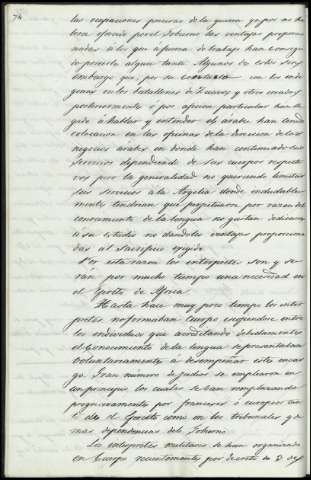 74
las espaciones precisas de la guerra ya por no ha
bera ofrecido por el Gobierno las ventajas proporcio
nadas á los que á fuerza de trabajo han consegui
do poseerla algun tanto. Algunos de estos sin
embargo que, por su contacto con los indi
genas en los batallones de Zuavos y otros creados
posteriormente ó por aficion particular han lle
gado á hablar y entender el arabe han tenido
colocacion en las oficinas de la direccion de los
negocios arabes en donde han continuado sus
servicios dependiendo de sus cuerpos respecti
vos pero la generalidad no queriendo limitar
sus servicios á la Argelia donde indudable
mente tendrian que perpetuarse por razon del
conocimiento de la lengua no gustan dedicarse
á su estudio no dandoles ventajas proporciona
das al sacrificio exigido.
Por esta razon los interpretes son y se
rán por mucho tiempo una necesidad en
el Egercito de Africa.
Hasta hace muy poco tiempo los inter
pretes no formaban cuerpo eligiendose entre
los individuos que acreditando debidamente
el conocimiento de la lengua se presentaban
voluntariamente á desempeñar este encar
go. Gran numero de judios se emplearon en
un principio los cuales se han remplazando
progresivamente por franceses ó europeos tan
to en el Egercito como en los tribunales y de
mas dependencias del Gobierno.
Los interpretes militares se han organizado
en Cuerpo recientemente por decreto de 9 de